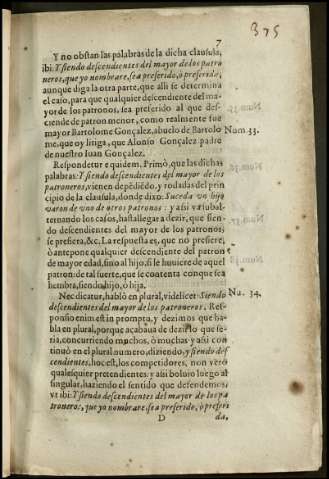 375
7
Y no obstan las palabras de la dicha clausula,
ibi: Y siendo descendientes del mayor de los patro
neros, que yo nombrare, sea preferido, ò preferida,
aunque diga la otra parte, que alli se determina
el caso, para que qualquier descendiente del ma-
yor de los patronos, sea preferido al que des-
ciende de patron menor, como realmente fue
mayor Bartolome Gonçalez, abuelo de Bartolo
Num. 33.
me, que oy litiga, que Alonso Gonçalez padre
de nuestro Iuan Gonçalez.
Respondetur equidem. Primò, que las dichas
palabras: Y siendo descendientes del mayor de los
patroneros, vienen depēdiēdo, y rodadas del prin
cipio de la clausula, donde dixo: Suceda vn hijo
varon de vno de otros patronos: y assi va subal-
ternando los casos, hasta llegar a dezir, que sien-
do descendientes del mayor de los patronos,
se prefiera, &c. La respuesta es, que no prefiere,
ò antepone qualquier descendiente del patron
de mayor edad, sino al hijo, si le huuiere de aquel
patron: de tal suerte, que se contenta con que sea
hembra, siendo hijo, ò hija.
Nec dicatur, hablò en plural, videlicet: Siendo
Nu. 34.
descendientes del mayor de los patroneros. Res-
ponsio enim est in prompta, y dezimos que ha-
bla en plural, porque acabaua de dezir lo que se-
ria, concurriendo muchos, ò muchas: y assi con
tinuò en el plural numero, diziendo, y siendo des
cendientes, hoc est, los competidores, non verò
qualesquier pretendientes, y assi boluiò luego al
singular, haziendo el sentido que defendemos,
vt ibi: Y siendo descendientes del mayor de los pa
troneros, que yo nombrare, sea preferido, ò preferi
D
da,